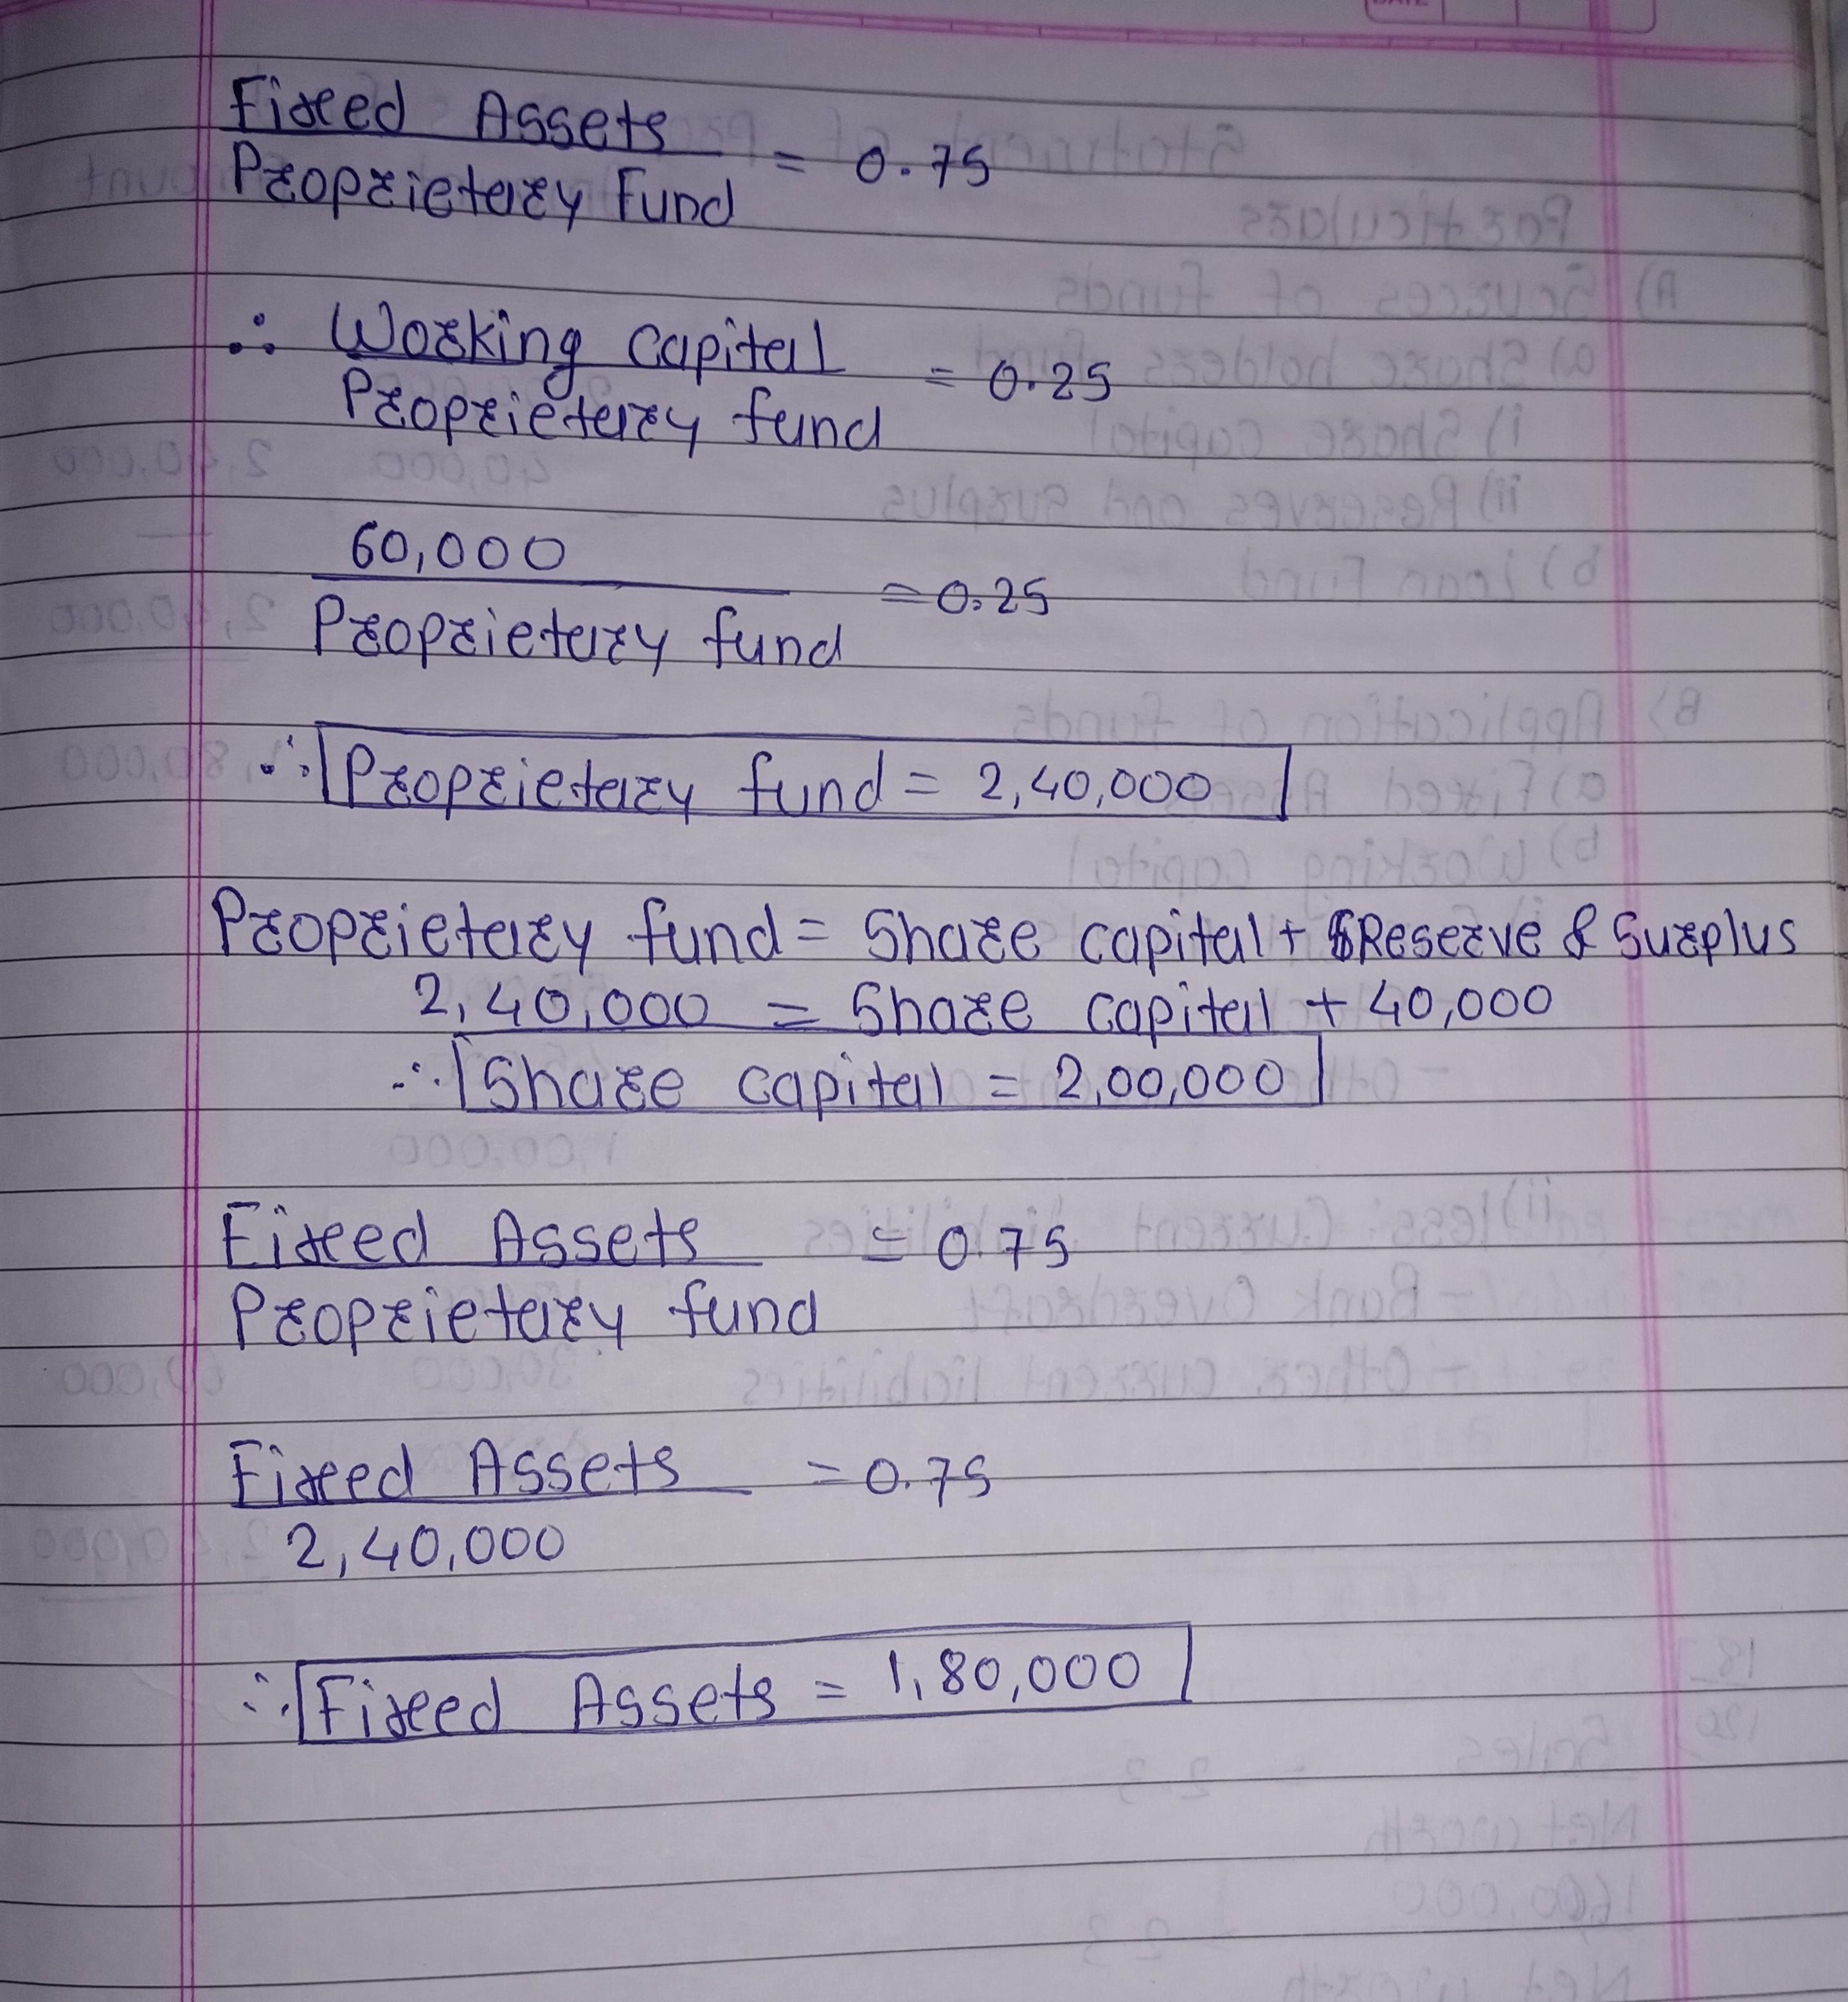 Fixed Assets
= 0.75
Proprietary Fund
∴ Working capital
= 0.25
Proprietary fund
60,000
= 0.25
Proprietary fund
∴ Proprietary fund = 2,40,000
Proprietary fund = Share capital + Reserve & Surplus
2,40,000 = Share capital + 40,000
∴ Share capital = 2,00,000
Fixed Assets = 0.75
Proprietary fund
Fixed Assets = 0.75
2,40,000
∴ Fixed Assets = 1,80,000